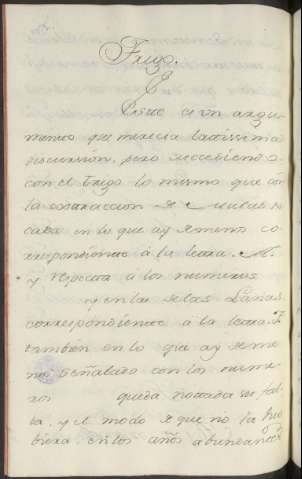 Trigo.
Este es un argu
mento que merecia latissima
discursion, pero sucediendo
con el trigo lo mismo que con
la extraccion de Mulas
cada en lo que ay demeno co
rrespondiente á la letra. M.
y Respecta á los numeros
y en las de las Lanas
correspondiente á la letra.
tambien en lo que ay deme
nos señalado con los nume
ros queda notada su fal
ta, y el modo de que no la hu
biera en los años abundantes